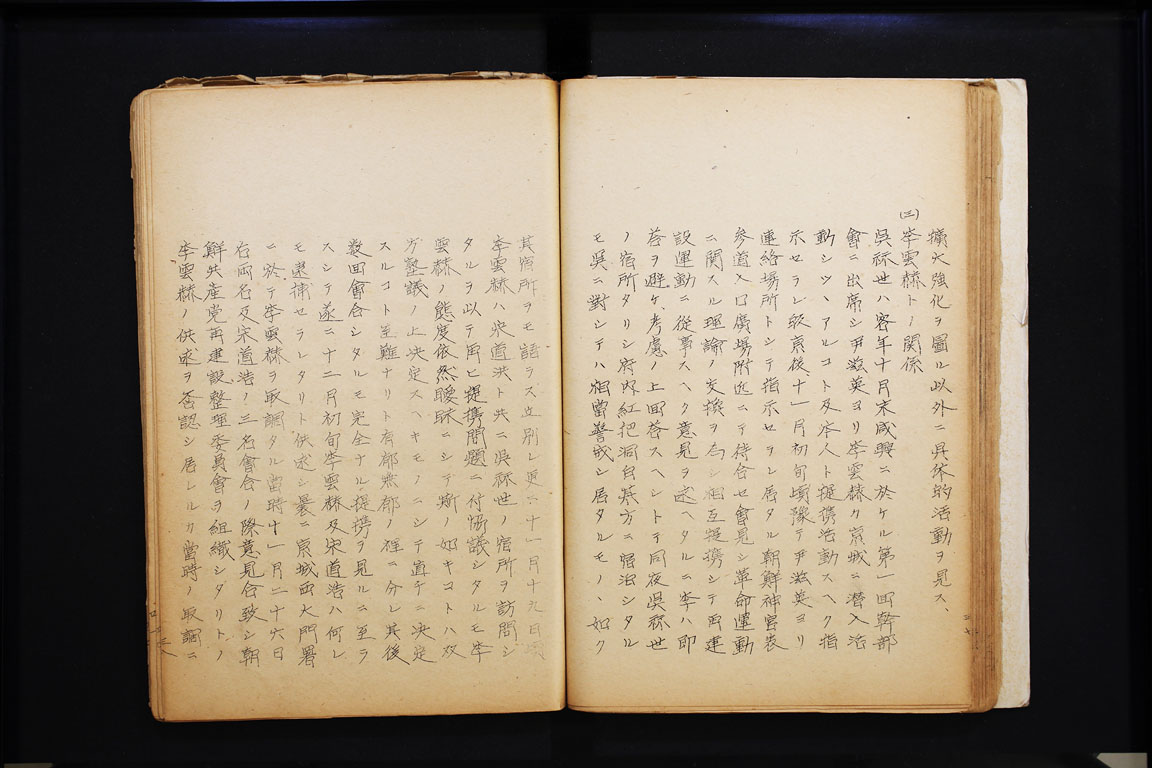 擴大強化ヲ圖ル以外ニ具体的活動ヲ見ス、
(三)
李雲赫トノ関係
呉祘世ハ客年十月末咸興ニ於ケル第一回幹部
會ニ出席シ尹滋英ヨリ李雲赫ク京城ニ潜入活
動シツヽアルコト及本人ト提携活動スヘク指
示セラレ皈京後十一月初旬頃豫テ尹滋英ヨリ
連絡場所トシテ指示セラレ居タル朝鮮神宮表
参道入口廣場附近ニテ待合セ會見シ革命運動
ニ関スル理論ノ交換ヲ為シ相互提携シテ再建
設運動ニ從事スヘク意見ヲ述ヘタルニ李ハ即
答ヲ避ケ、考慮ノ上回答スヘシトテ同夜呉祘世
ノ宿所タリシ府内紅把洞白 方ニ宿泊シタル
モ呉ニ對シテハ相當警戒シ居タルモノヽ如ク
其宿所ヲモ語ラス立別レ更ニ十一月十九日頃
李雲赫ハ宋道浩ト共ニ呉祘世ノ宿所ヲ訪問シ
タルヲ以テ再ヒ提携問題ニ付協議シタルモ李
雲赫ノ態度依然曖昧ニシテ斯ノ如キコトハ双
方塾議ノ上決定スヘキモノニシテ直チニ決定
スルコト至難ナリト有耶無耶ノ裡ニ分レ其後
数回會合シタルモ完全ナル提携ヲ見ルニ至ラ
スシテ遂ニ十二月初旬李雲赫及宋道浩ハ何レ
モ逮捕セラレタリト供述シ曩ニ京城西大門署
ニ於テ李雲赫ヲ取調タル當時十一月二十六日
右両名及宋道浩ノ三名會合ノ際意見合致シ朝
鮮共産党再建設整理委員會ヲ組織シタリトノ
李雲赫ノ供述ヲ否認シ居レルカ當時ノ取調ニ